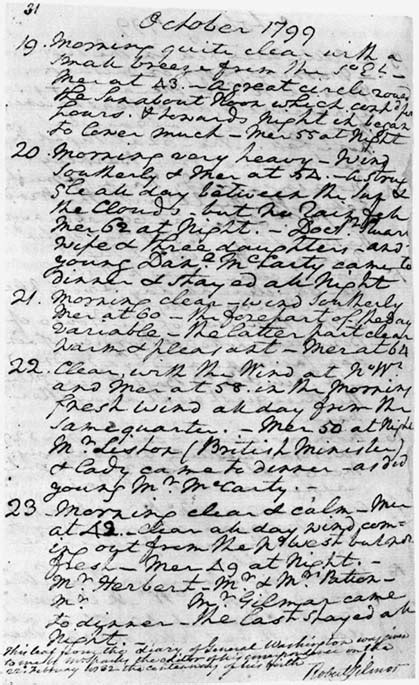 31
October 1799
19. Morning quite clear with a
small breeze from the So. Et.—
Mer at 43.— A great circle round
the Sun about Noon which contd. for
hours. & towards Night it began
to lower much — Mer 55 at Night
20. Morning very heavy — Wind
Southerly & Mer at 54.— a strug
gle all day between the Sun &
the Clouds, but no rain fell
Mer 62 at Night.— Doctr. Stuart
Wife & three daughters — and
young Danl. McCarty came to
dinner & stayed all Night
21. Morning clear — wind Southerly
Mer at 60 — the forepart of the day
variable — the latter part clear
warm & pleasant — Mer at 64
22. Clear, with the Wind at No. Wt.
and Mer at 58. in the Morning
fresh wind all day from the
same quarter.— Mer 50 at Night
Mr. Liston (British Minister)
& Lady came to dinner — as did
young Mr. McCarty.—
23 Morning clear & calm — Mer
at 42. Clear all day wind com-
ing out from the No. West but not
fresh — Mer 49 at Night.—
Mr. Herbert — Mr. & Mrs. Patton —
Mr. Mr. Gilmar came
to dinner — the last stayed all
Night.
This leaf from the Diary of General Washington was given
to me by the editor of his correspondence on the
22d. February 1832 the centennary of his birth
Robert Gilmor